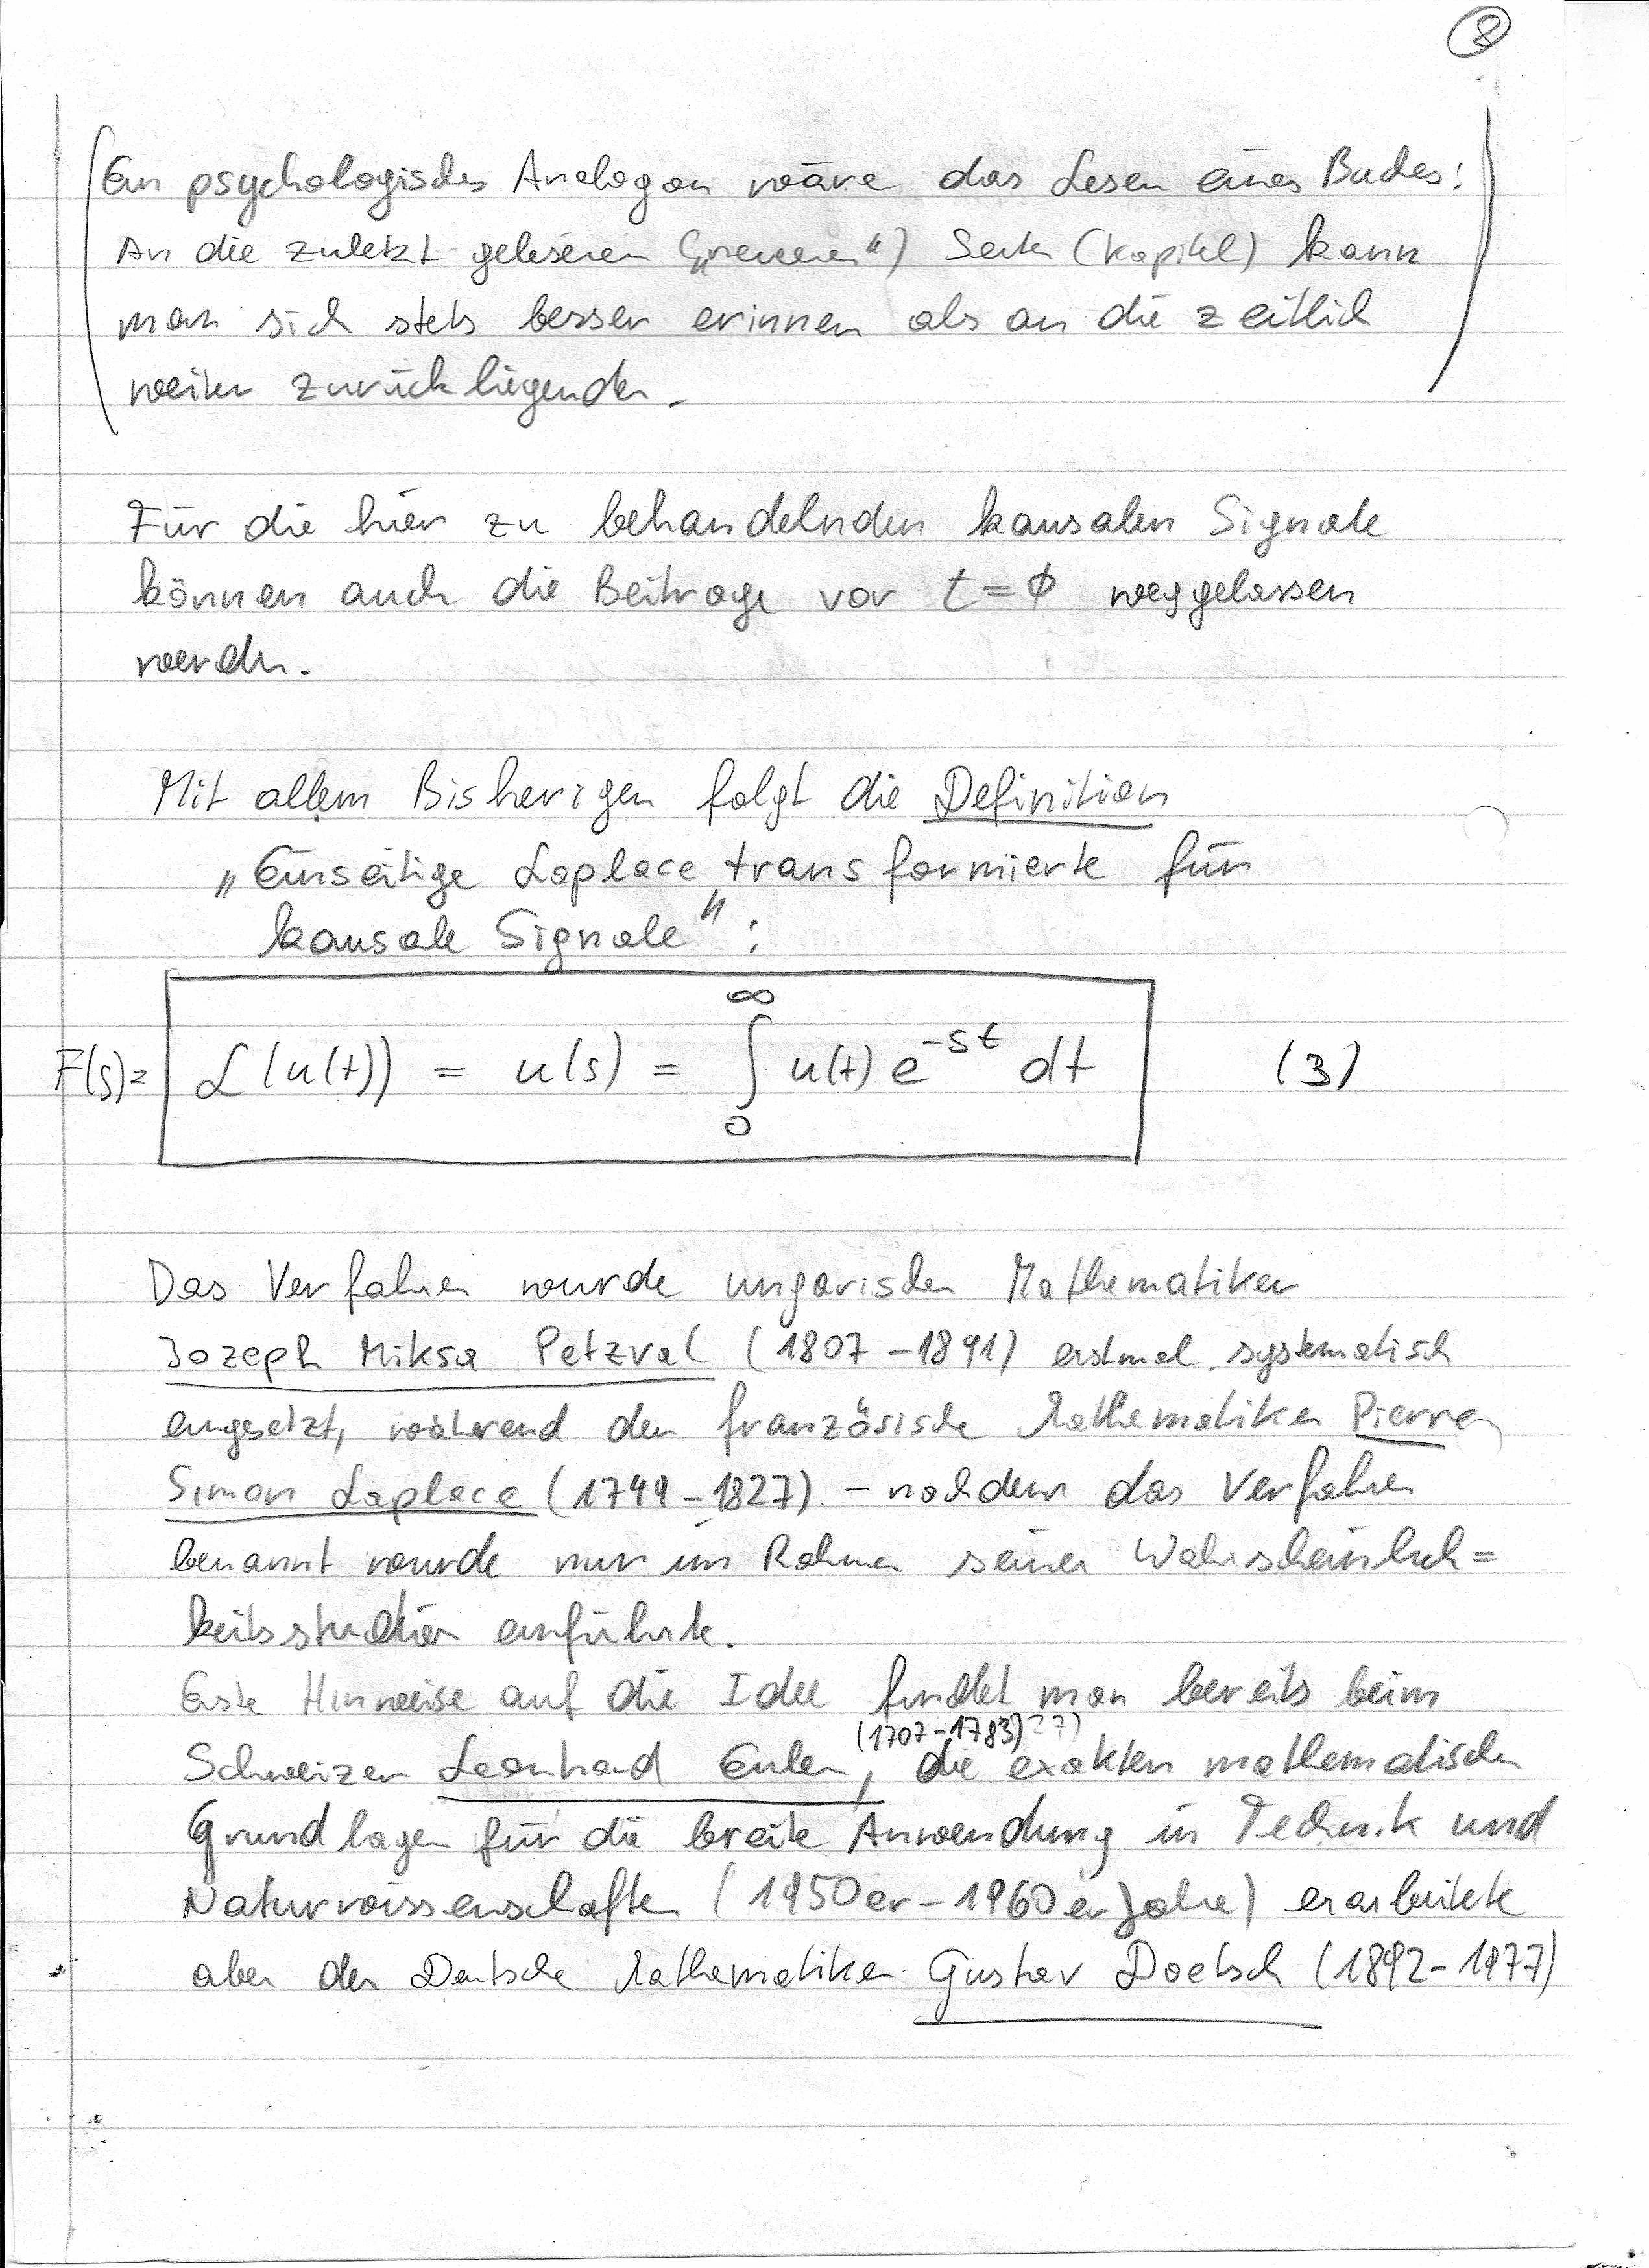 8
(Ein psychologisches Analogon wäre das Lesen eines Buches:
An die zuletzt gelesenen („neueren“) Seiten (Kapitel) kann
man sich stets besser erinnern als an die zeitlich
weiter zurückliegenden.)
Für die hier zu behandelnden kausalen Signale
können auch die Beiträge vor t=0 weggelassen
werden.
Mit allem Bisherigen folgt die Definition
„Einseitige Laplacetransformierte für
kausale Signale“:
F(s)= ℒ(u(t)) = u(s) = ∫₀^∞ u(t) e^{-st} dt (3)
Das Verfahren wurde ungarischen Mathematiker
Jozeph Miksa Petzval (1807-1891) erstmal systematisch
eingesetzt, während der französische Mathematiker Pierre
Simon Laplace (1749-1827) – nachdem das Verfahren
benannt wurde nur im Rahmen seiner Wahrscheinlich=
keitsstudien einführte.
Erste Hinweise auf die Idee findet man bereits beim
(1707-1783)
Schweizer Leonhard Euler, die exakten mathematischen
Grundlagen für die breite Anwendung in Technik und
Naturwissenschaften (1950er-1960er Jahre) erarbeitete
aber der Deutsche Mathematiker Gustav Doetsch (1892-1977)